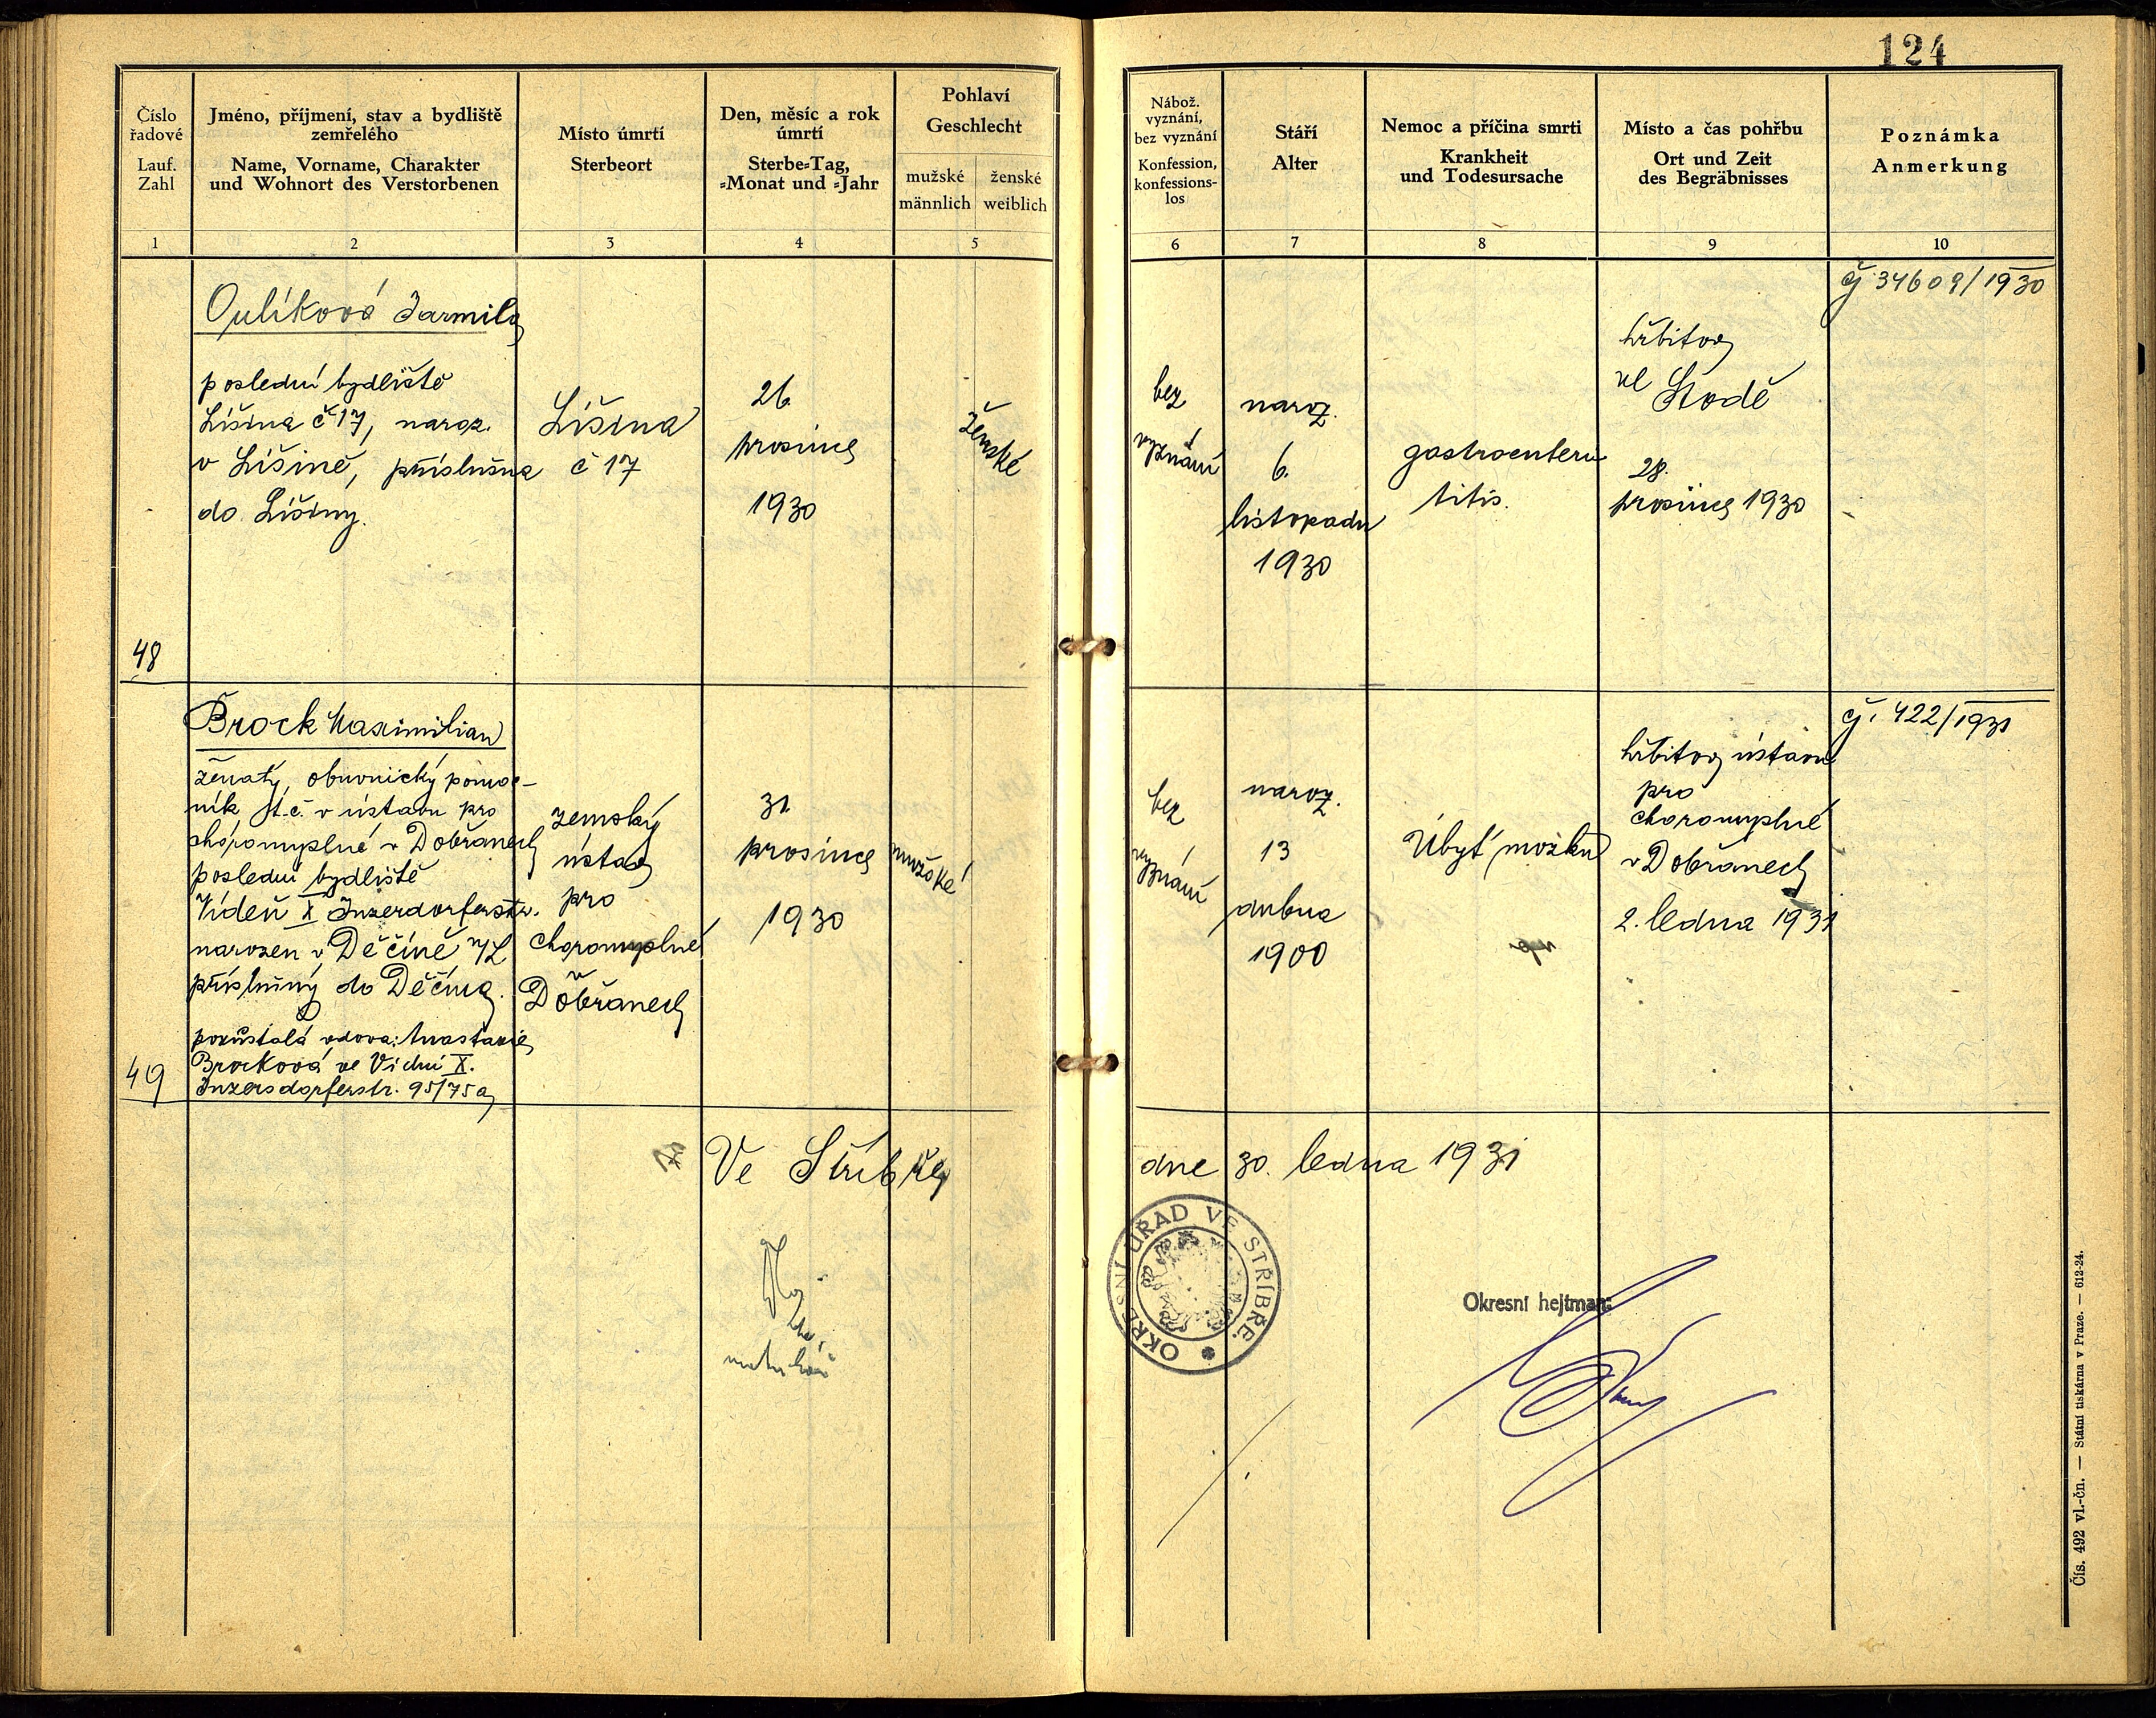 124
Číslo řadové
Lauf. Zahl
Jméno, příjmení, stav a bydliště zemřelého
Name, Vorname, Charakter und Wohnort des Verstorbenen
Místo úmrtí
Sterbeort
Den, měsíc a rok úmrtí
Sterbe=Tag, =Monat und =Jahr
Pohlaví
Geschlecht
mužské
männlich
ženské
weiblich
Nábož. vyznání, bez vyznání
Konfession, konfessions-los
Stáří
Alter
Nemoc a příčina smrti
Krankheit und Todesursache
Místo a čas pohřbu
Ort und Zeit des Begräbnisses
Poznámka
Anmerkung
1 2 3 4 5 6 7 8 9 10
48
Oulíková Jarmila
poslední bydliště
Líšina č 17, naroz.
v Líšině, příslušna
do Líšiny.
Líšina
č 17
26.
prosince
1930
ženské
bez
vyznání
naroz.
6.
listopadu
1930
gastroenteri
titis.
hřbitov
ve Stodě
28.
prosince 1930
čj 34609/1930
49
Brock Maximilian
ženatý, obuvnický pomoc-
ník, t.č. v ústavu pro
choromyslné v Dobřanech
poslední bydliště
Vídeň X Inzerdorferstr.
narozen v Děčíně n/L
příslušný do Děčína.
pozůstalá vdova: Anastazie
Brocková ve Vídni X.
Inzersdorferstr. 95/75a
zemský
ústav
pro
choromyslné
v
Dobřanech
31.
prosince
1930
mužské
bez
vyznání
naroz.
13
dubna
1900
Úbyť mozku
hřbitov ústavu
pro
choromyslné
v Dobřanech
2. ledna 1931
čj. 422/1931
Ve Stříbře
dne 30. ledna 1931
OKRESNÍ ÚŘAD VE STŘÍBŘE
Okresní hejtman:
Čís. 492 vl.-čn. — Státní tiskárna v Praze. — 612-24.